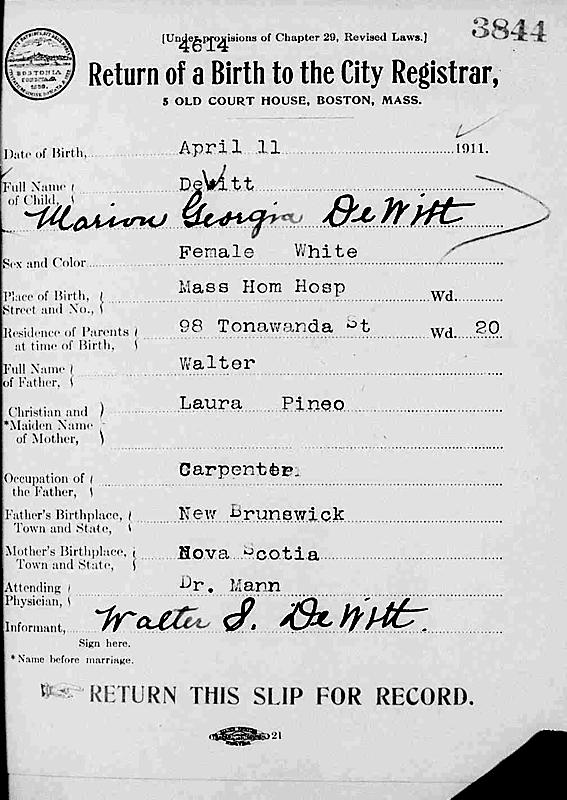 3844
[Under provisions of Chapter 29, Revised Laws.]
4614
Return of a Birth to the City Registrar,
5 OLD COURT HOUSE, BOSTON, MASS.
BOSTONIA
Date of Birth, April 11 1911.
Full Name of Child, DeWitt
Marion Georgia DeWitt
Sex and Color Female White
Place of Birth, Street and No., Mass Hom Hosp Wd.
Residence of Parents at time of Birth, 98 Tonawanda St Wd. 20
Full Name of Father, Walter
Christian and *Maiden Name of Mother, Laura Pineo
Occupation of the Father, Carpenter
Father's Birthplace, Town and State, New Brunswick
Mother's Birthplace, Town and State, Nova Scotia
Attending Physician, Dr. Mann
Informant, Walter S. DeWitt.
Sign here.
*Name before marriage.
RETURN THIS SLIP FOR RECORD.
21